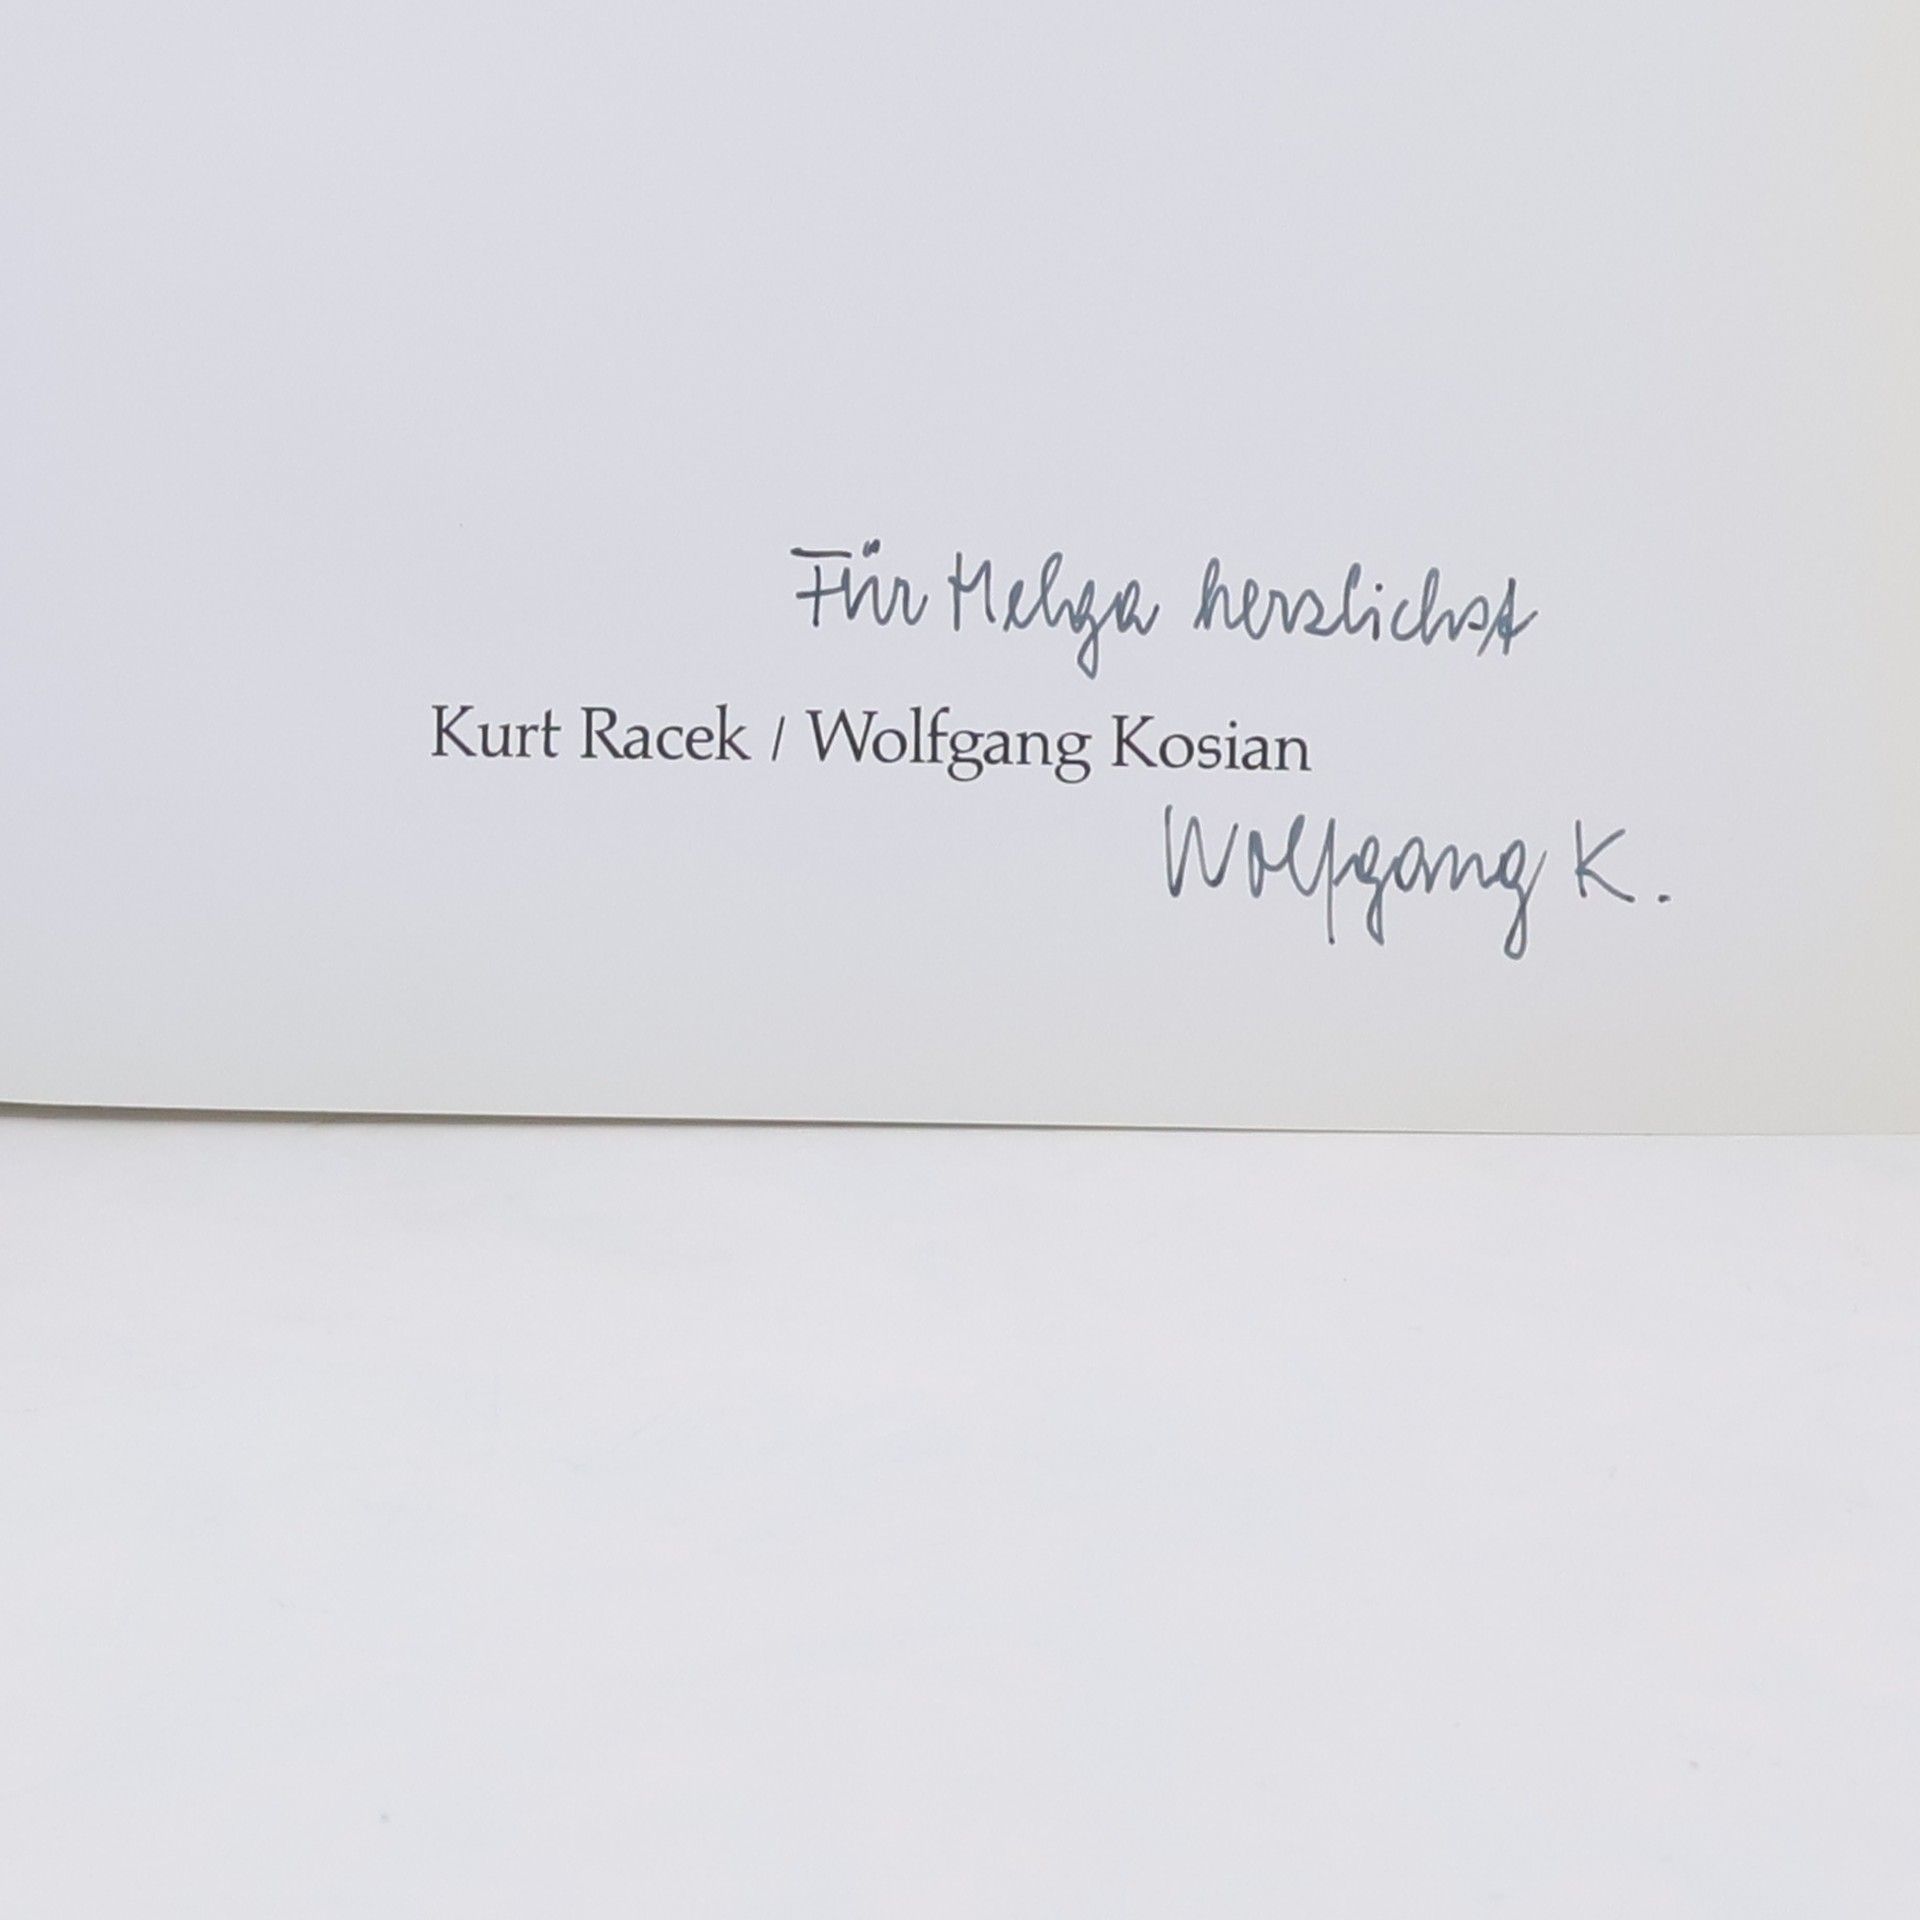 Für Helga herzlichst
Kurt Racek / Wolfgang Kosian
Wolfgang K.